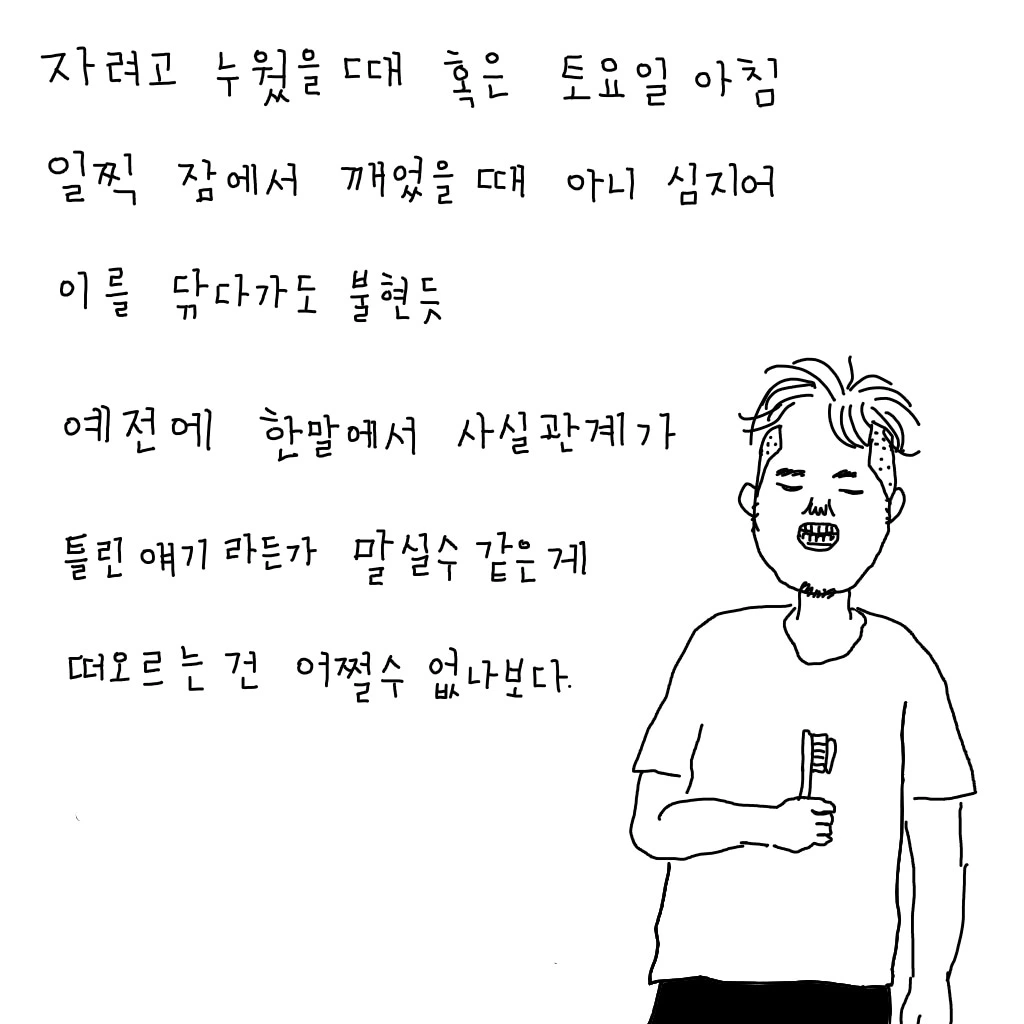 자려고 누웠을 때 혹은 토요일 아침
일찍 잠에서 깨었을 때 아니 심지어
이를 닦다가도 불현듯
예전에 한말에서 사실관계가
틀린 얘기라든가 말실수 같은게
떠오르는 건 어쩔수 없나보다.